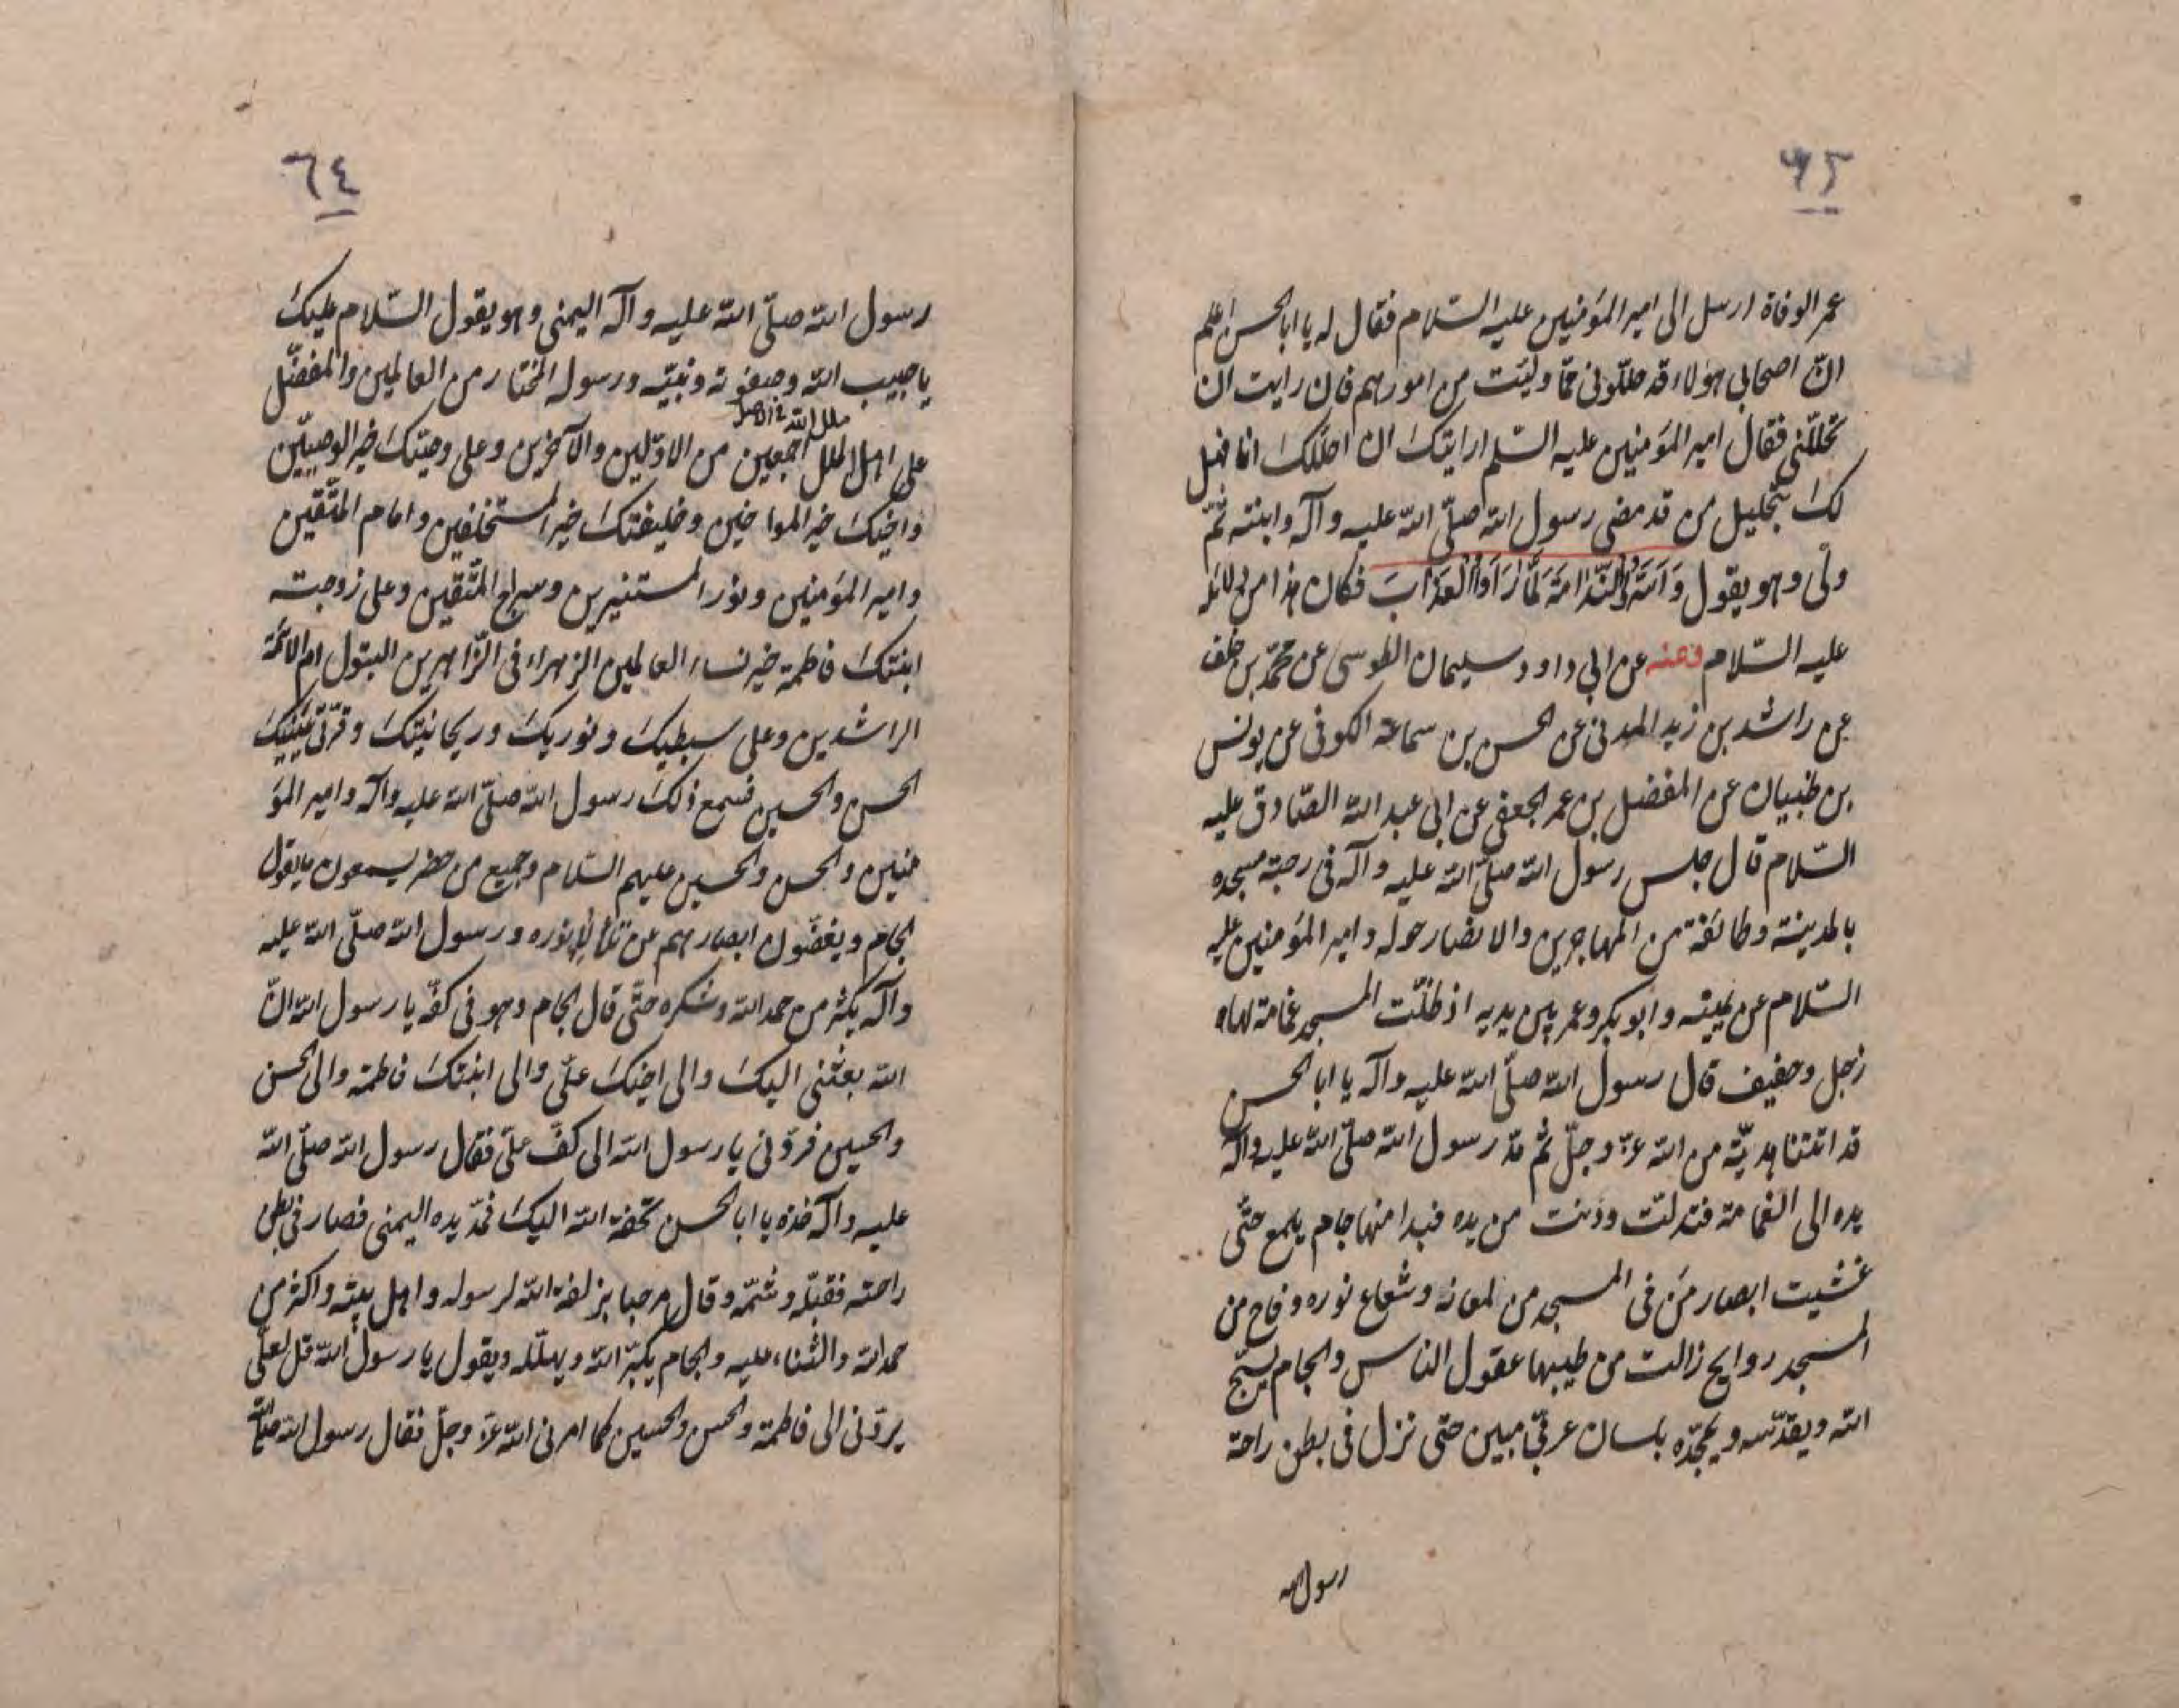 ٦٥
عمر الوفاة ارسل الى امير المؤمنين عليه السّلام فقال له يا ابا الحسن اعلم
انّ اصحابى هؤلاء قد حللّونى ممّا وليت من امورهم فان رايت ان
تحللّنى فقال امير المؤمنين عليه السّلم ارايتك ان احللّك انا فهل
لك بتحليل من قد مضى رسول الله صلّى الله عليه وآله وابنته ثمّ
ولّى وهو يقول وَاَسَرُّوا النَّدَامَةَ لَمَّا رَاَوُا الْعَذَابَ فكان هذا من دلائله
عليه السّلام وعنه عن ابى داود سليمان الطوسى عن محمّد بن خلف
عن راشد بن زيد المدنى عن الحسن بن سماعة الكوفى عن يونس
بن ظبيان عن المفضل بن عمر الجعفى عن ابى عبد الله الصّادق عليه
السّلام قال جلس رسول الله صلّى الله عليه وآله فى رحبة مسجده
بالمدينة وطائفة من المهاجرين والانصار حوله وامير المؤمنين عليه
السّلام عن يمينه وابو بكر وعمر بين يديه اذ ظلّت المسجد غمامة لها
زجل وحفيف قال رسول الله صلّى الله عليه وآله يا ابا الحسن
قد اتتنا هديّة من الله عزّ وجلّ ثم مدّ رسول الله صلّى الله عليه وآله
يده الى الغمامة فتدلّت ودنت من يده فبدا منها جام يلمع حتّى
غشيت ابصار مَن فى المسجد من لمعانه وشعاع نوره وفاح من
المسجد روايح زالت من طيبها عقول الناس والجام يسبّح
الله ويقدّسه ويمجّده بلسان عربىّ مبين حتى نزل فى بطن راحة
رسول الله
٦٤
رسول الله صلّى الله عليه وآله اليمنى وهو يقول السّلام عليك
يا حبيب الله وصفوته ونبيّه ورسوله المختار من العالمين والمفضّل
ملل الله
على اهل الملل اجمعين من الاوّلين والآخرين وعلى وصيّك خير الوصيّين
واخيك خير المواخين وخليفتك خير المستخلفين وامام المتّقين
وامير المؤمنين ونور المستنيرين وسراج المتّقين وعلى زوجته
ابنتك فاطمة خير نساء العالمين الزهراء فى الزّاهرين البتول امّ الائمّة
الراشدين وعلى سبطيك ونوريك وريحانتيك وقرّتى عينيك
الحسن والحسين فسمع ذلك رسول الله صلّى الله عليه وآله وامير المؤ
منين والحسن والحسين عليهم السّلام وجميع من حضر يسمعون ما يقول
الجام ويغضّون ابصارهم عن تلألؤ نوره ورسول الله صلّى الله عليه
وآله يكثر من حمد الله وشكره حتّى قال الجام وهو فى كفّه يا رسول الله انّ
الله بعثنى اليك والى اخيك علىّ والى ابنتك فاطمة والى الحسن
والحسين فردّنى يا رسول الله الى كفّ علىّ فقال رسول الله صلّى الله
عليه وآله خذه يا ابا الحسن تحفة الله اليك فمدّ يده اليمنى فصار فى بطن
راحته فقبّله وشمّه وقال مرحبا بزلفة الله لرسوله واهل بيته واكثر من
حمد الله والثناء عليه والجام يكبّر الله ويهلّله ويقول يا رسول الله قل لعلىّ
يردّنى الى فاطمة والحسن والحسين كما امرنى الله عزّ وجلّ فقال رسول الله صلّى الله